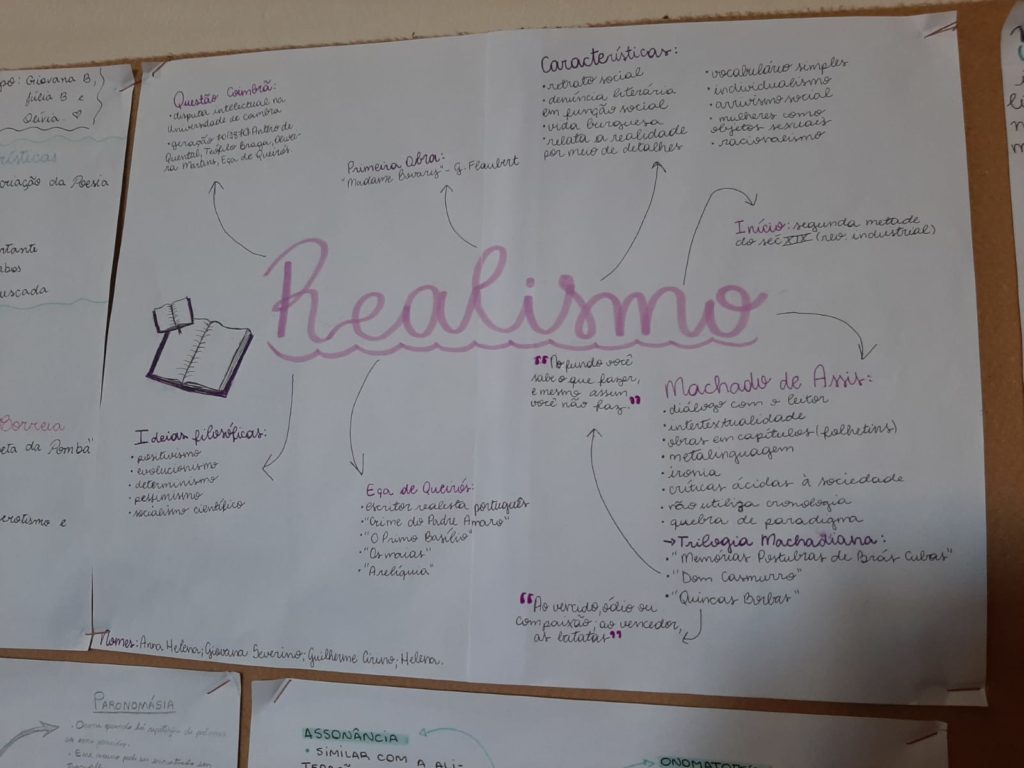 po: Giovana B,
Júlia B e
Olívia. ♡
rísticas
criação da Poesia
ntante
mbos
uscada
Correia
eta da Pomba"
erotismo e
Questão Coimbrã:
• disputa intelectual na
Universidade de Coimbra
• geração 70 (1870) Antero de
Quental, Teófilo Braga,
ria Martins, Eça de Queirós.
Primeira Obra:
"Madame Bovary" - G. Flaubert
Características:
• retrato social
• denúncia literária
em função social
• vida burguesa
• relata a realidade
por meio de detalhes
• vocabulário simples
• individualismo
• arrivismo social
• mulheres como
objetos sexuais
• racionalismo
Início: segunda metade
do séc XIX (rev. industrial)
Realismo
"No fundo você
sabe o que fazer,
e mesmo assim
você não faz."
Machado de Assis:
• diálogo com o leitor
• intertextualidade
• obras em capítulos (folhetins)
• metalinguagem
• ironia
• críticas ácidas à sociedade
• não utiliza cronologia
• quebra de paradigma
→ Trilogia Machadiana:
• "Memórias Postubras de Brás Cubas"
• "Dom Casmurro"
• "Quincas Borbas"
Ideias filosóficas:
• positivismo
• evolucionismo
• determinismo
• pessimismo
• socialismo científico
Eça de Queirós:
• escritor realista português
• "Crime do Padre Amaro"
• "O Primo Basílio"
• "Os maias"
• "A relíquia"
"Ao vencido, ódio ou
compaixão; ao vencedor,
as batatas"
Nomes: Anna Helena; Giovana Severino; Guilherme Ciruno; Helena.
PARONOMÁSIA
• Ocorre quando há repetição de palavras
ASSONÂNCIA
• SIMILAR COM A ALI-
TERAÇÃO